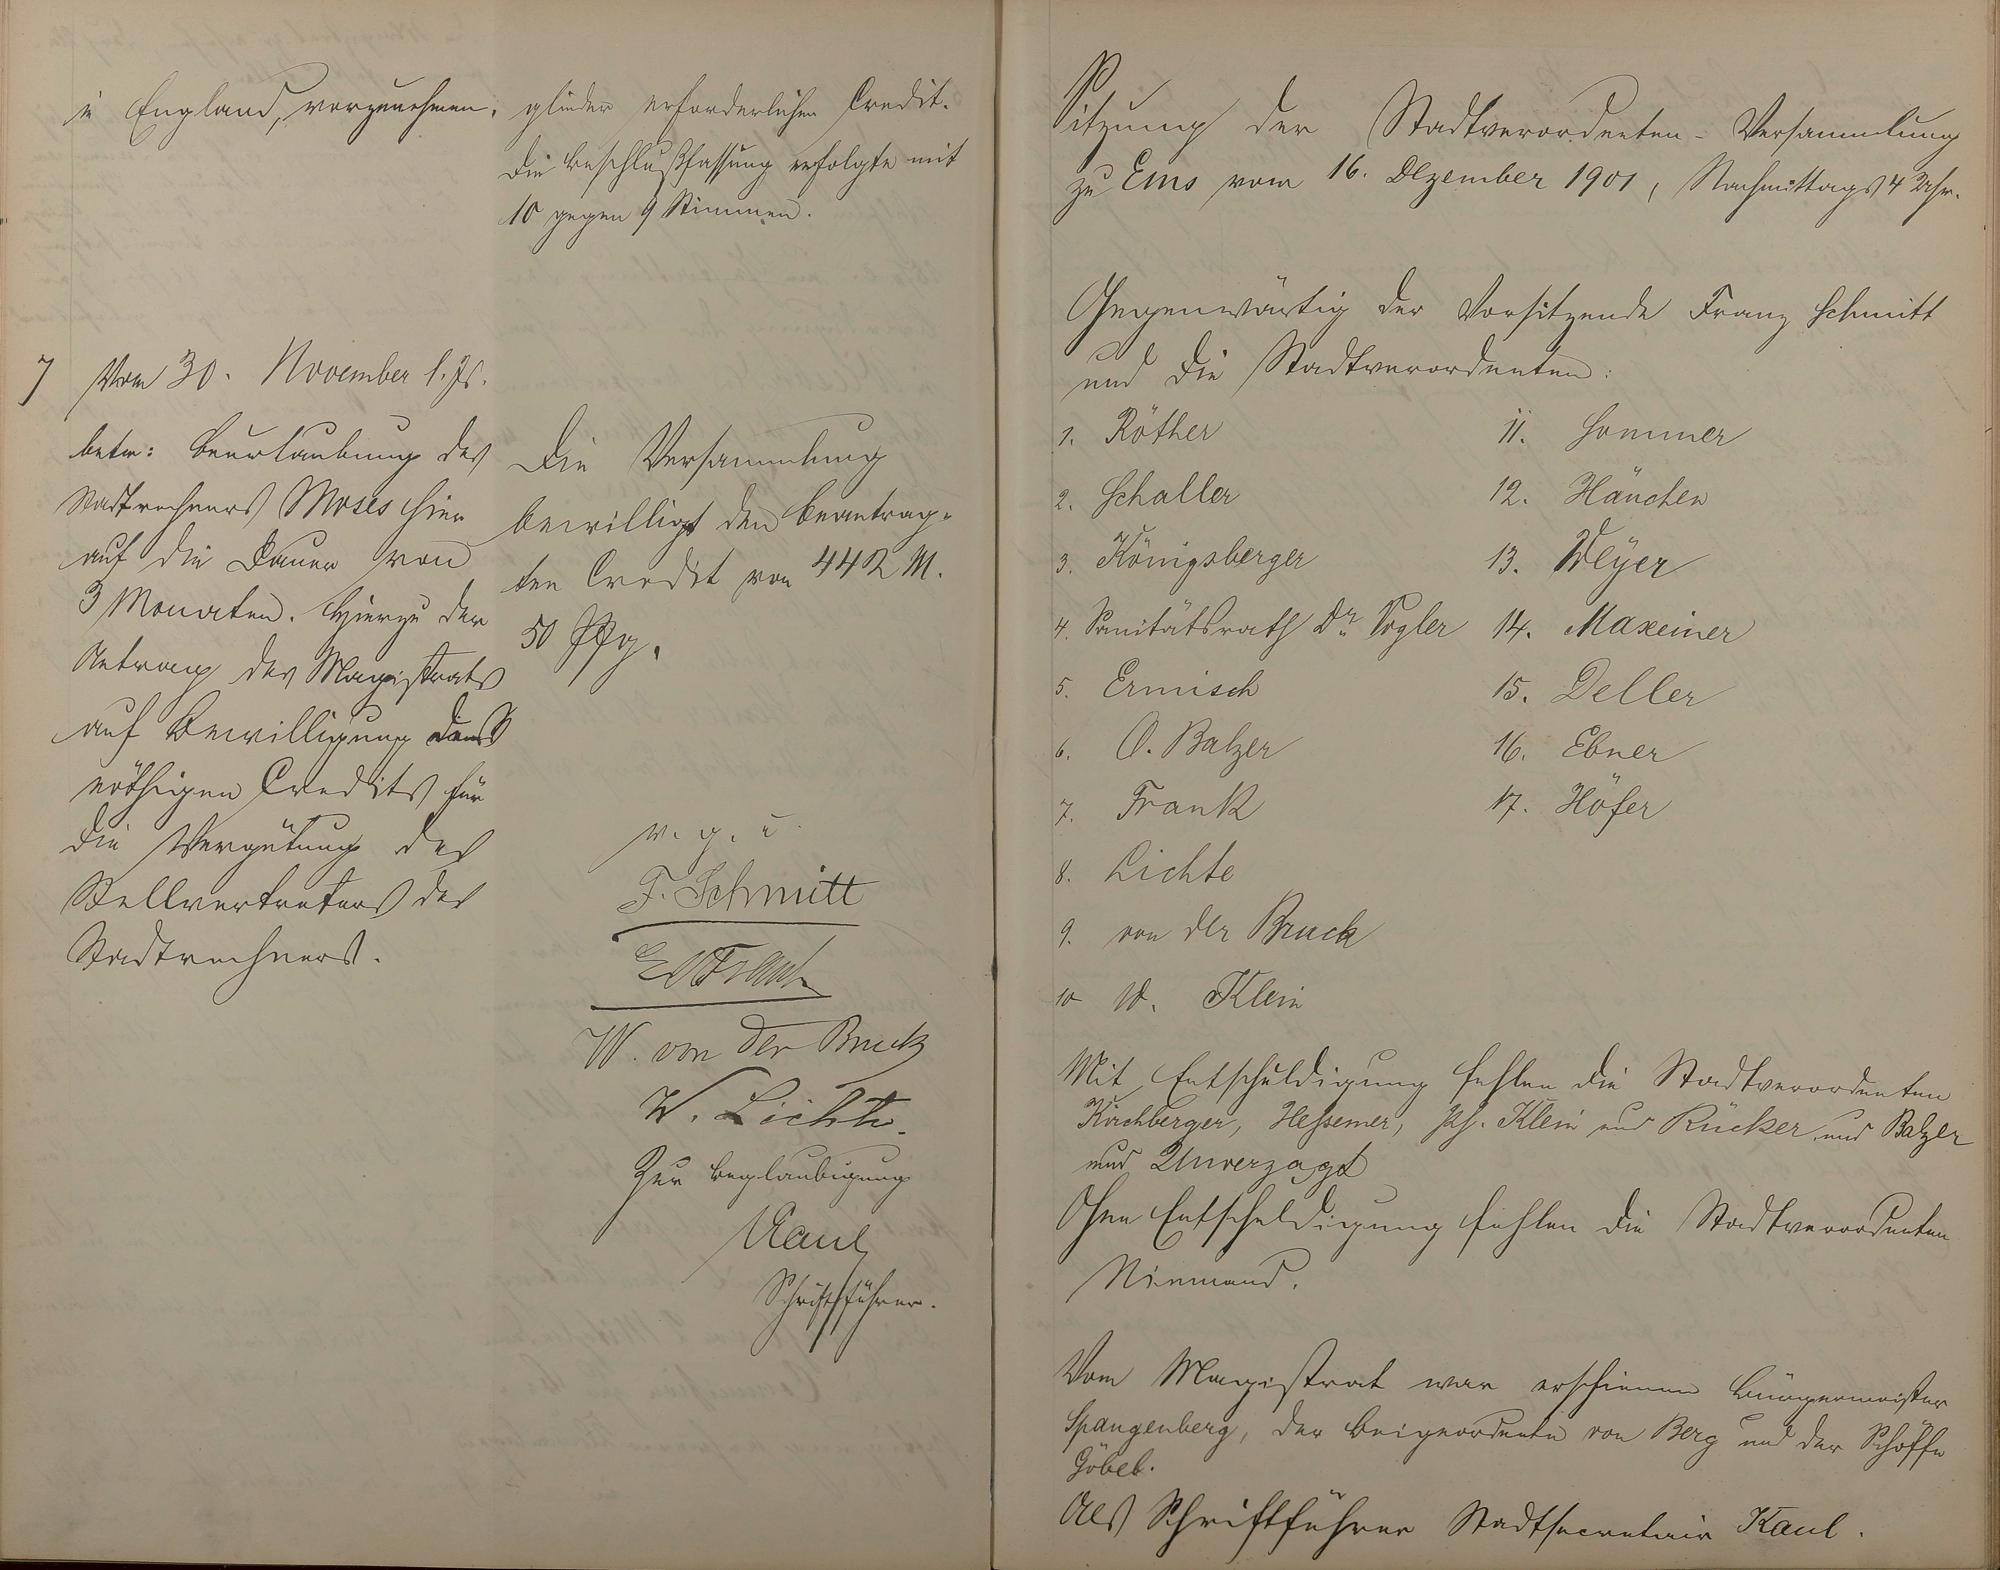 in England, vorzunehmen.
glieder erforderlichen Credit.
Die Beschlußfassung erfolgte mit
10 gegen 9 Stimmen.
7 Vom 30. November l. Js.
betr: Beurlaubung des
Stadtrechners Moses hier
auf die Dauer von
3 Monaten. Hierzu der
Antrag des Magistrats
auf Bewilligung des
nöthigen Credits für
die Vergütung des
Stellvertreters des
Stadtrechners.
Die Versammlung
bewilligt den beantrag-
ten Credit von 442 M.
50 Pfg.
v. g. u.
F. Schmitt
Ed Frank
W. von der Bruck
W. Lichte.
Zur Beglaubigung
Kaul
Schriftführer.
Sitzung der Stadtverordneten-Versammlung
zu Ems vom 16. Dezember 1901, Nachmittags 4 Uhr.
Gegenwärtig der Vorsitzende Franz Schmitt
und die Stadtverordneten:
1. Röther
2. Schaller
3. Königsberger
4. Sanitätsrath Dr. Vogler
5. Ermisch
6. O. Balzer
7. Frank
8. Lichte
9. von der Bruck
10 W. Klein
11. Sommer
12. Hänchen
13. Weyer
14. Maxeiner
15. Deller
16. Ebner
17. Höfer
Mit Entschuldigung fehlen die Stadtverordneten
Kirchberger, Hessemer, Klein und Rücker und Balzer
und Unverzagt
Ohne Entschuldigung fehlen die Stadtverordneten
Niemand.
Vom Magistrat war erschienen Bürgermeister
Spangenberg, der Beigeordnete von Berg und der Schöffe
Göbel.
Als Schriftführer Stadtsecretair Kaul.